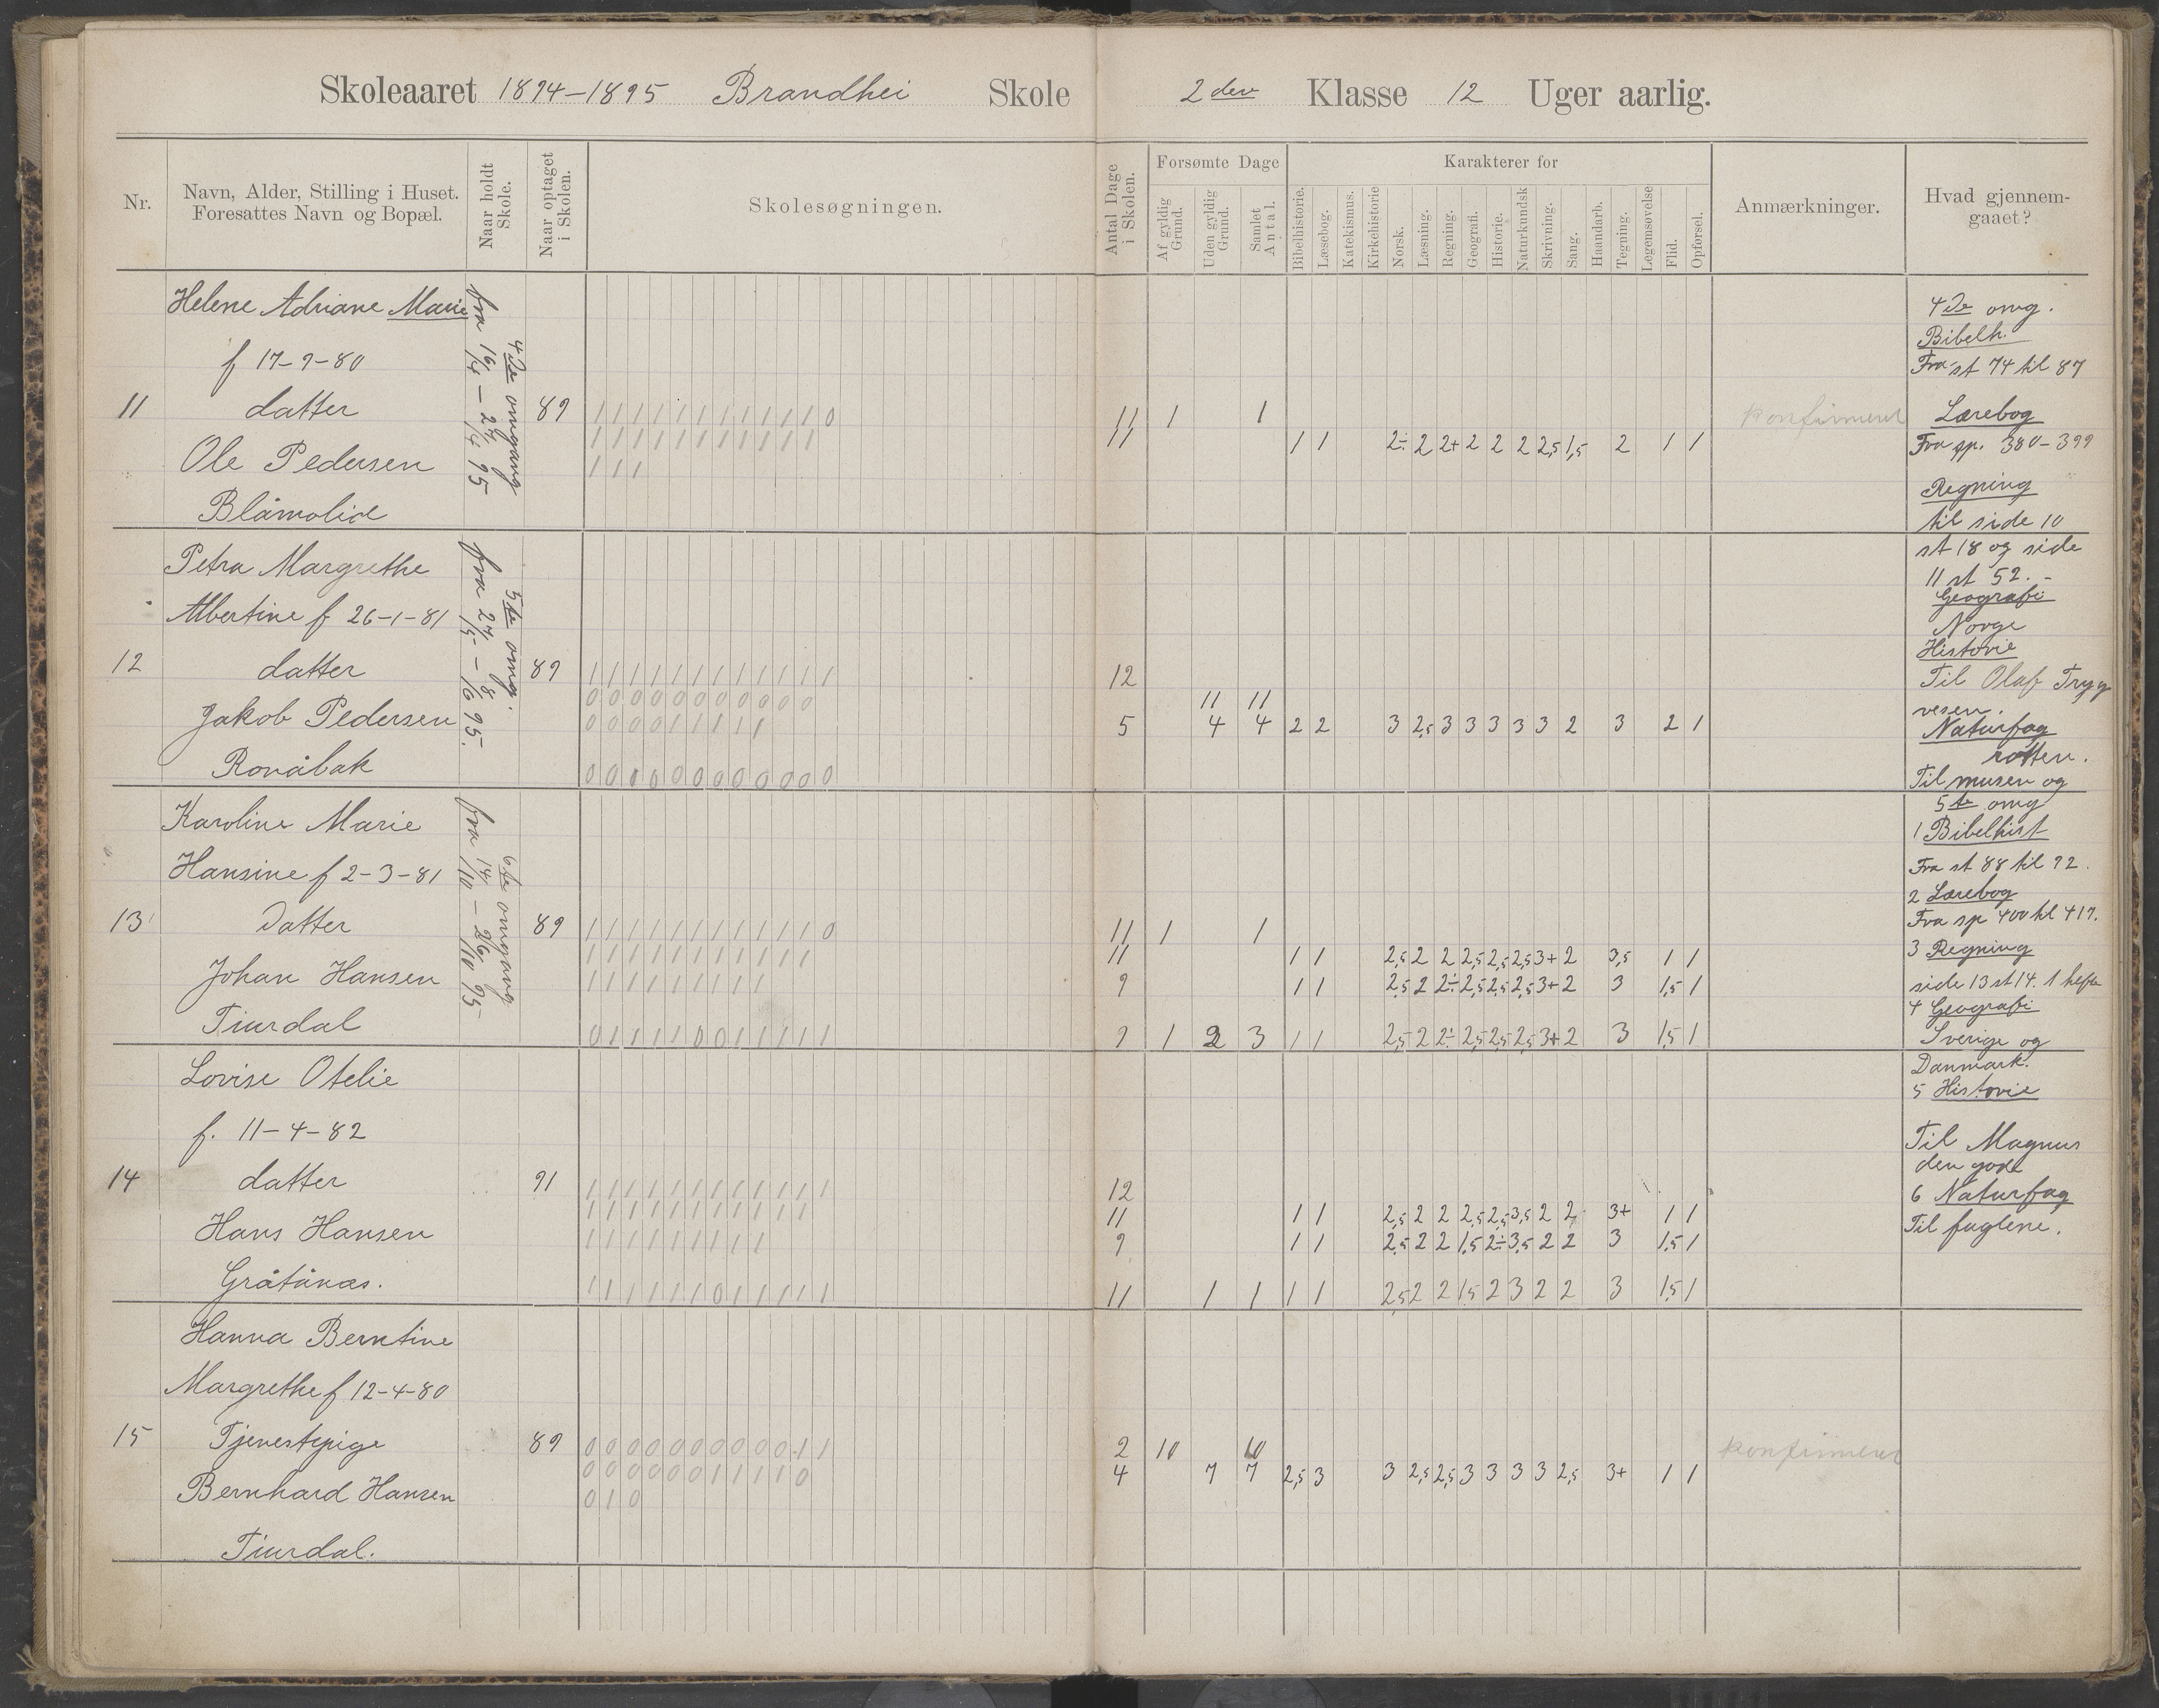 Skoleaaret 1894-1895 Brandhei Skole 2den Klasse 12 Uger aarlig.
Nr.
Navn, Alder, Stilling i Huset.
Foresattes Navn og Bopæl.
Naar holdt
Skole.
Naar optaget
i Skolen.
Skolesøgningen.
Antal Dage
i Skolen.
Forsømte Dage
Af gyldig
Grund.
Uden gyldig
Grund.
Samlet
Antal.
Karakterer for
Bibelhistorie.
Læsebog.
Katekismus.
Kirkehistorie
Norsk.
Læsning.
Regning.
Geografi.
Historie.
Naturkundsk
Skrivning.
Sang.
Haandarb.
Tegning.
Legemsøvelse
Flid.
Opførsel.
Anmærkninger.
Hvad gjennem-
gaaet?
Helene Adriane Marie
f 17-9-80
11 datter 89 1 1 1 1 1 1 1 1 1 1 1 0 11 1 1 konfirmeret
1 1 1 1 1 1 1 1 1 1 1 11 1 1 2÷ 2 2+ 2 2 2 2,5 1,5 2 1 1
Ole Pedersen 1 1 1
Blåmolid
4de omgang
fra 16/4 - 27/4 95
Petra Margrethe
Albertine f 26-1-81
12 datter 89 1 1 1 1 1 1 1 1 1 1 1 1 12
0 0 0 0 0 0 0 0 0 0 0 11 11
Jakob Pedersen 0 0 0 0 1 1 1 1 1 5 4 4 2 2 3 2,5 3 3 3 3 3 2 3 2 1
Rovåbak 0 0 0 0 0 0 0 0 0 0 0 0
5te omg.
fra 27/5 - 8/6 95.
Karoline Marie
Hansine f 2-3-81
13 Datter 89 1 1 1 1 1 1 1 1 1 1 1 0 11 1 1
1 1 1 1 1 1 1 1 1 1 1 11 1 1 2,5 2 2 2,5 2,5 2,5 3+ 2 3,5 1 1
Johan Hansen 1 1 1 1 1 1 1 1 1 9 1 1 2,5 2 2÷ 2,5 2,5 2,5 3+ 2 3 1,5 1
Tiurdal 0 1 1 1 1 0 0 1 1 1 1 1 9 1 2 3 1 1 2,5 2 2÷ 2,5 2,5 2,5 3+ 2 3 1,5 1
6te omgang
fra 14/10 - 26/10 95
Lovise Otelie
f. 11-4-82
14 datter 91 1 1 1 1 1 1 1 1 1 1 1 1 12
1 1 1 1 1 1 1 1 1 1 1 11 1 1 2,5 2 2 2,5 2,5 3,5 2 2 3+ 1 1
Hans Hansen 1 1 1 1 1 1 1 1 1 9 1 1 2,5 2 2 1,5 2÷ 3,5 2 2 3 1,5 1
Gråtånæs. 1 1 1 1 1 1 0 1 1 1 1 1 11 1 1 1 1 2,5 2 2 1,5 2 3 2 2 3 1,5 1
Hanna Berntine
Margrethe f 12-4-80
15 Tjenestepige 89 0 0 0 0 0 0 0 0 0 0 1 1 2 10 10 konfirmeret
0 0 0 0 0 0 1 1 1 1 0 4 7 7 2,5 3 3 2,5 2,5 3 3 3 3 2,5 3+ 1 1
Bernhard Hansen 0 1 0
Tiurdal.
4de omg.
Bibelh.
Fra st 74 til 87
Lærebog
Fra sp. 380-399
Regning
til side 10
st 18 og side
11 st 52.-
Geografi
Norge
Historie
Til Olaf Tryg
vesen.
Naturfag
rotten.
Til musen og
5te omg
1 Bibelhist
Fra st 88 til 92.
2 Lærebog
Fra sp 400 til 417.
3 Regning
side 13 st 14. 1 hefte
4 Geografi
Sverige og
Danmark.
5 Historie
Til Magnus
den gode
6 Naturfag
Til fuglene.